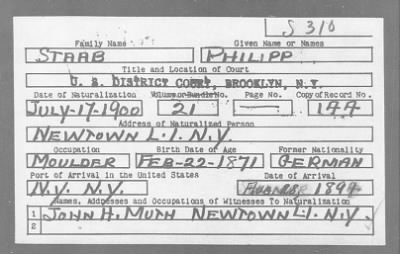 S 310
Family Name Given Name or Names
STAAB PHILIPP
Title and Location of Court
U. S. DISTRICT COURT, BROOKLYN, N.Y.
Date of Naturalization Volume or Bundle No. Page No. Copy of Record No.
JULY-17-1900 21 — 144
Address of Naturalized Person
NEWTOWN L.I. N.Y.
Occupation Birth Date or Age Former Nationality
MOULDER FEB-22-1871 GERMAN
Port of Arrival in the United States Date of Arrival
N.Y. N.Y. 1894
Names, Addresses and Occupations of Witnesses To Naturalization
1 JOHN H. MUTH NEWTOWN L.I. N.Y.
2